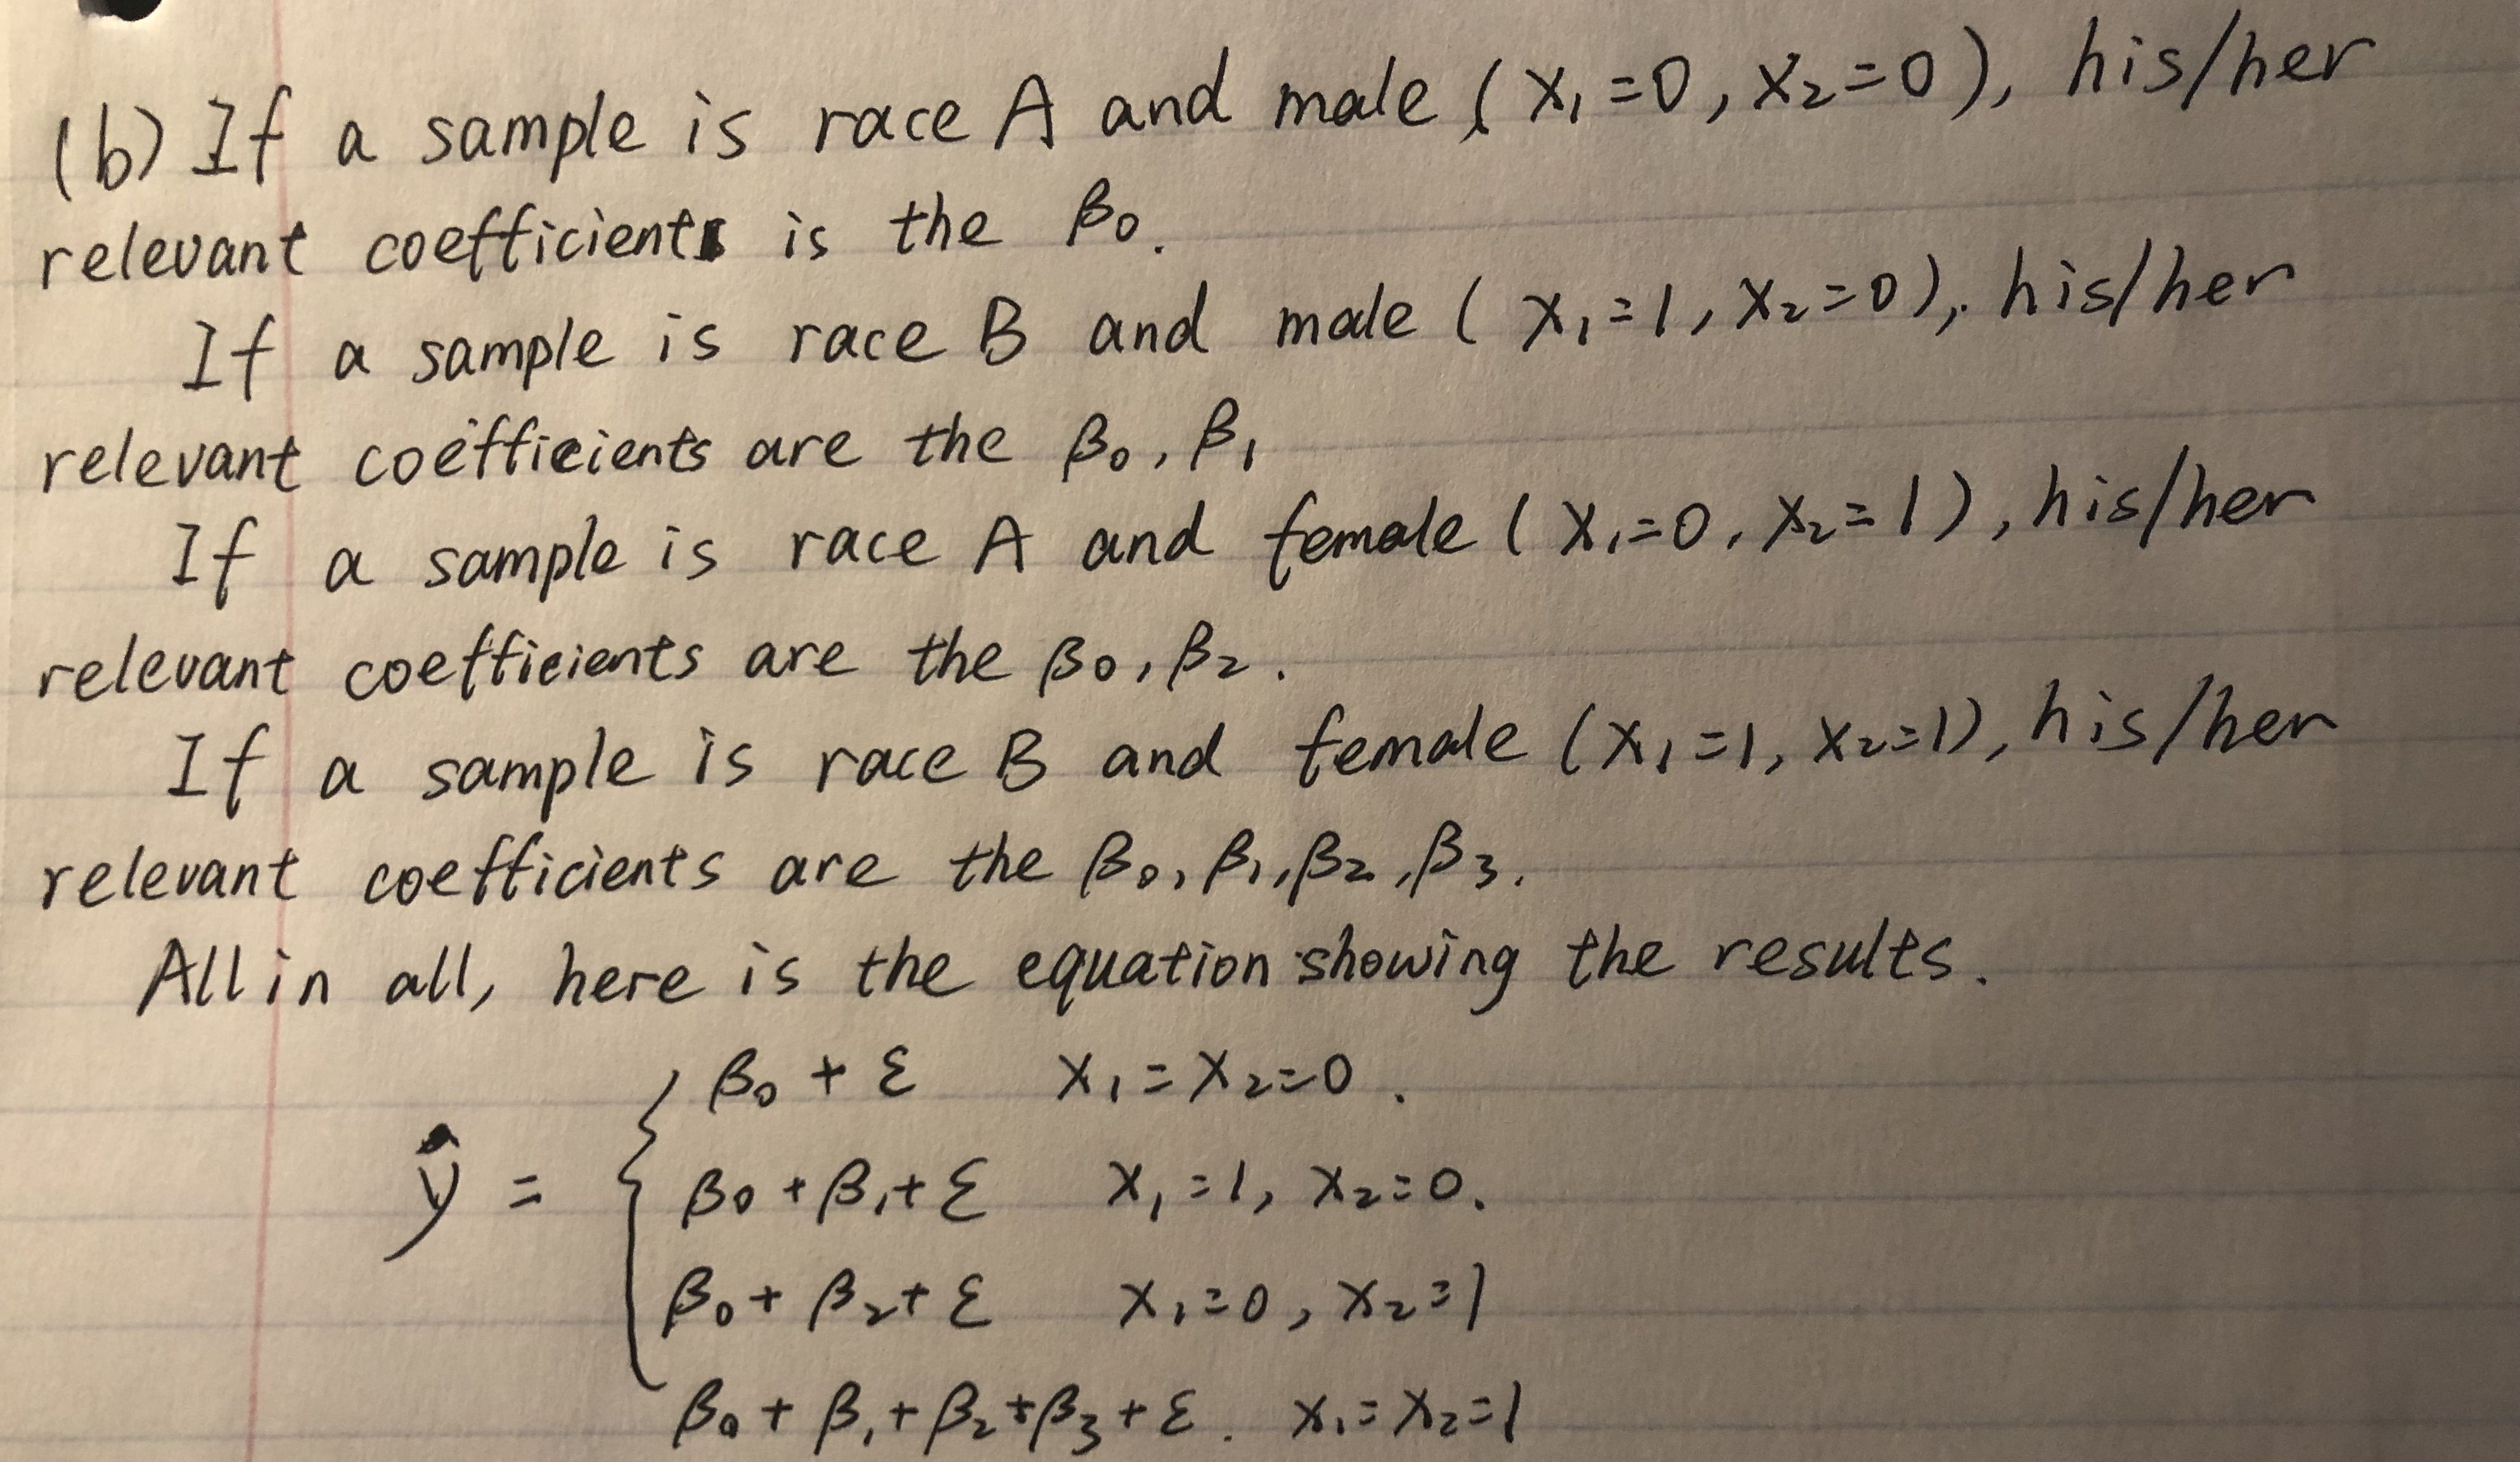 (b) If a sample is race A and male (x₁=0, x₂=0), his/her
relevant coefficient is the β₀.
If a sample is race B and male (x₁=1, x₂=0), his/her
relevant coefficients are the β₀, β₁
If a sample is race A and female (x₁=0, x₂=1), his/her
relevant coefficients are the β₀, β₂.
If a sample is race B and female (x₁=1, x₂=1), his/her
relevant coefficients are the β₀, β₁, β₂, β₃.
All in all, here is the equation showing the results.
β₀ + ε x₁ = x₂ = 0.
ŷ = { β₀ + β₁ + ε x₁ = 1, x₂ = 0.
β₀ + β₂ + ε x₁ = 0, x₂ = 1
β₀ + β₁ + β₂ + β₃ + ε. x₁ = x₂ = 1